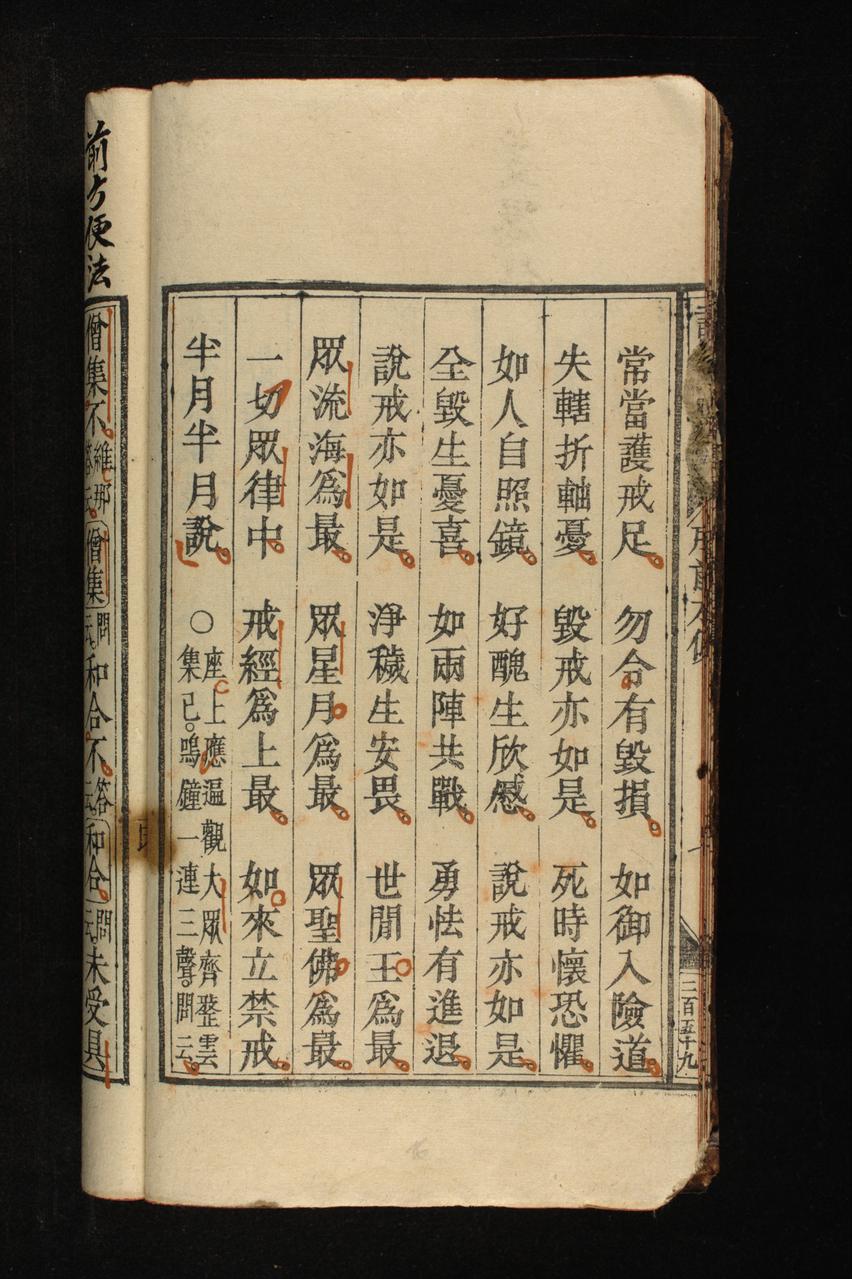 常當護戒足 勿令有毀損 如御入險道
失轄折軸憂 毀戒亦如是 死時懷恐懼
如人自照鏡 好醜生欣慼 說戒亦如是
全毀生憂喜 如兩陣共戰 勇怯有進退
說戒亦如是 淨穢生安畏 世間王為最
眾流海為最 眾星月為最 眾聖佛為最
一切眾律中 戒經為上最 如來立禁戒
半月半月說 ○
座上應遍觀大眾齊登雲
集已鳴鐘一連三聲問云
三百五十九
前方便法
僧集不 維那答云 僧集 問云 和合不 答云 和合 問云 未受具